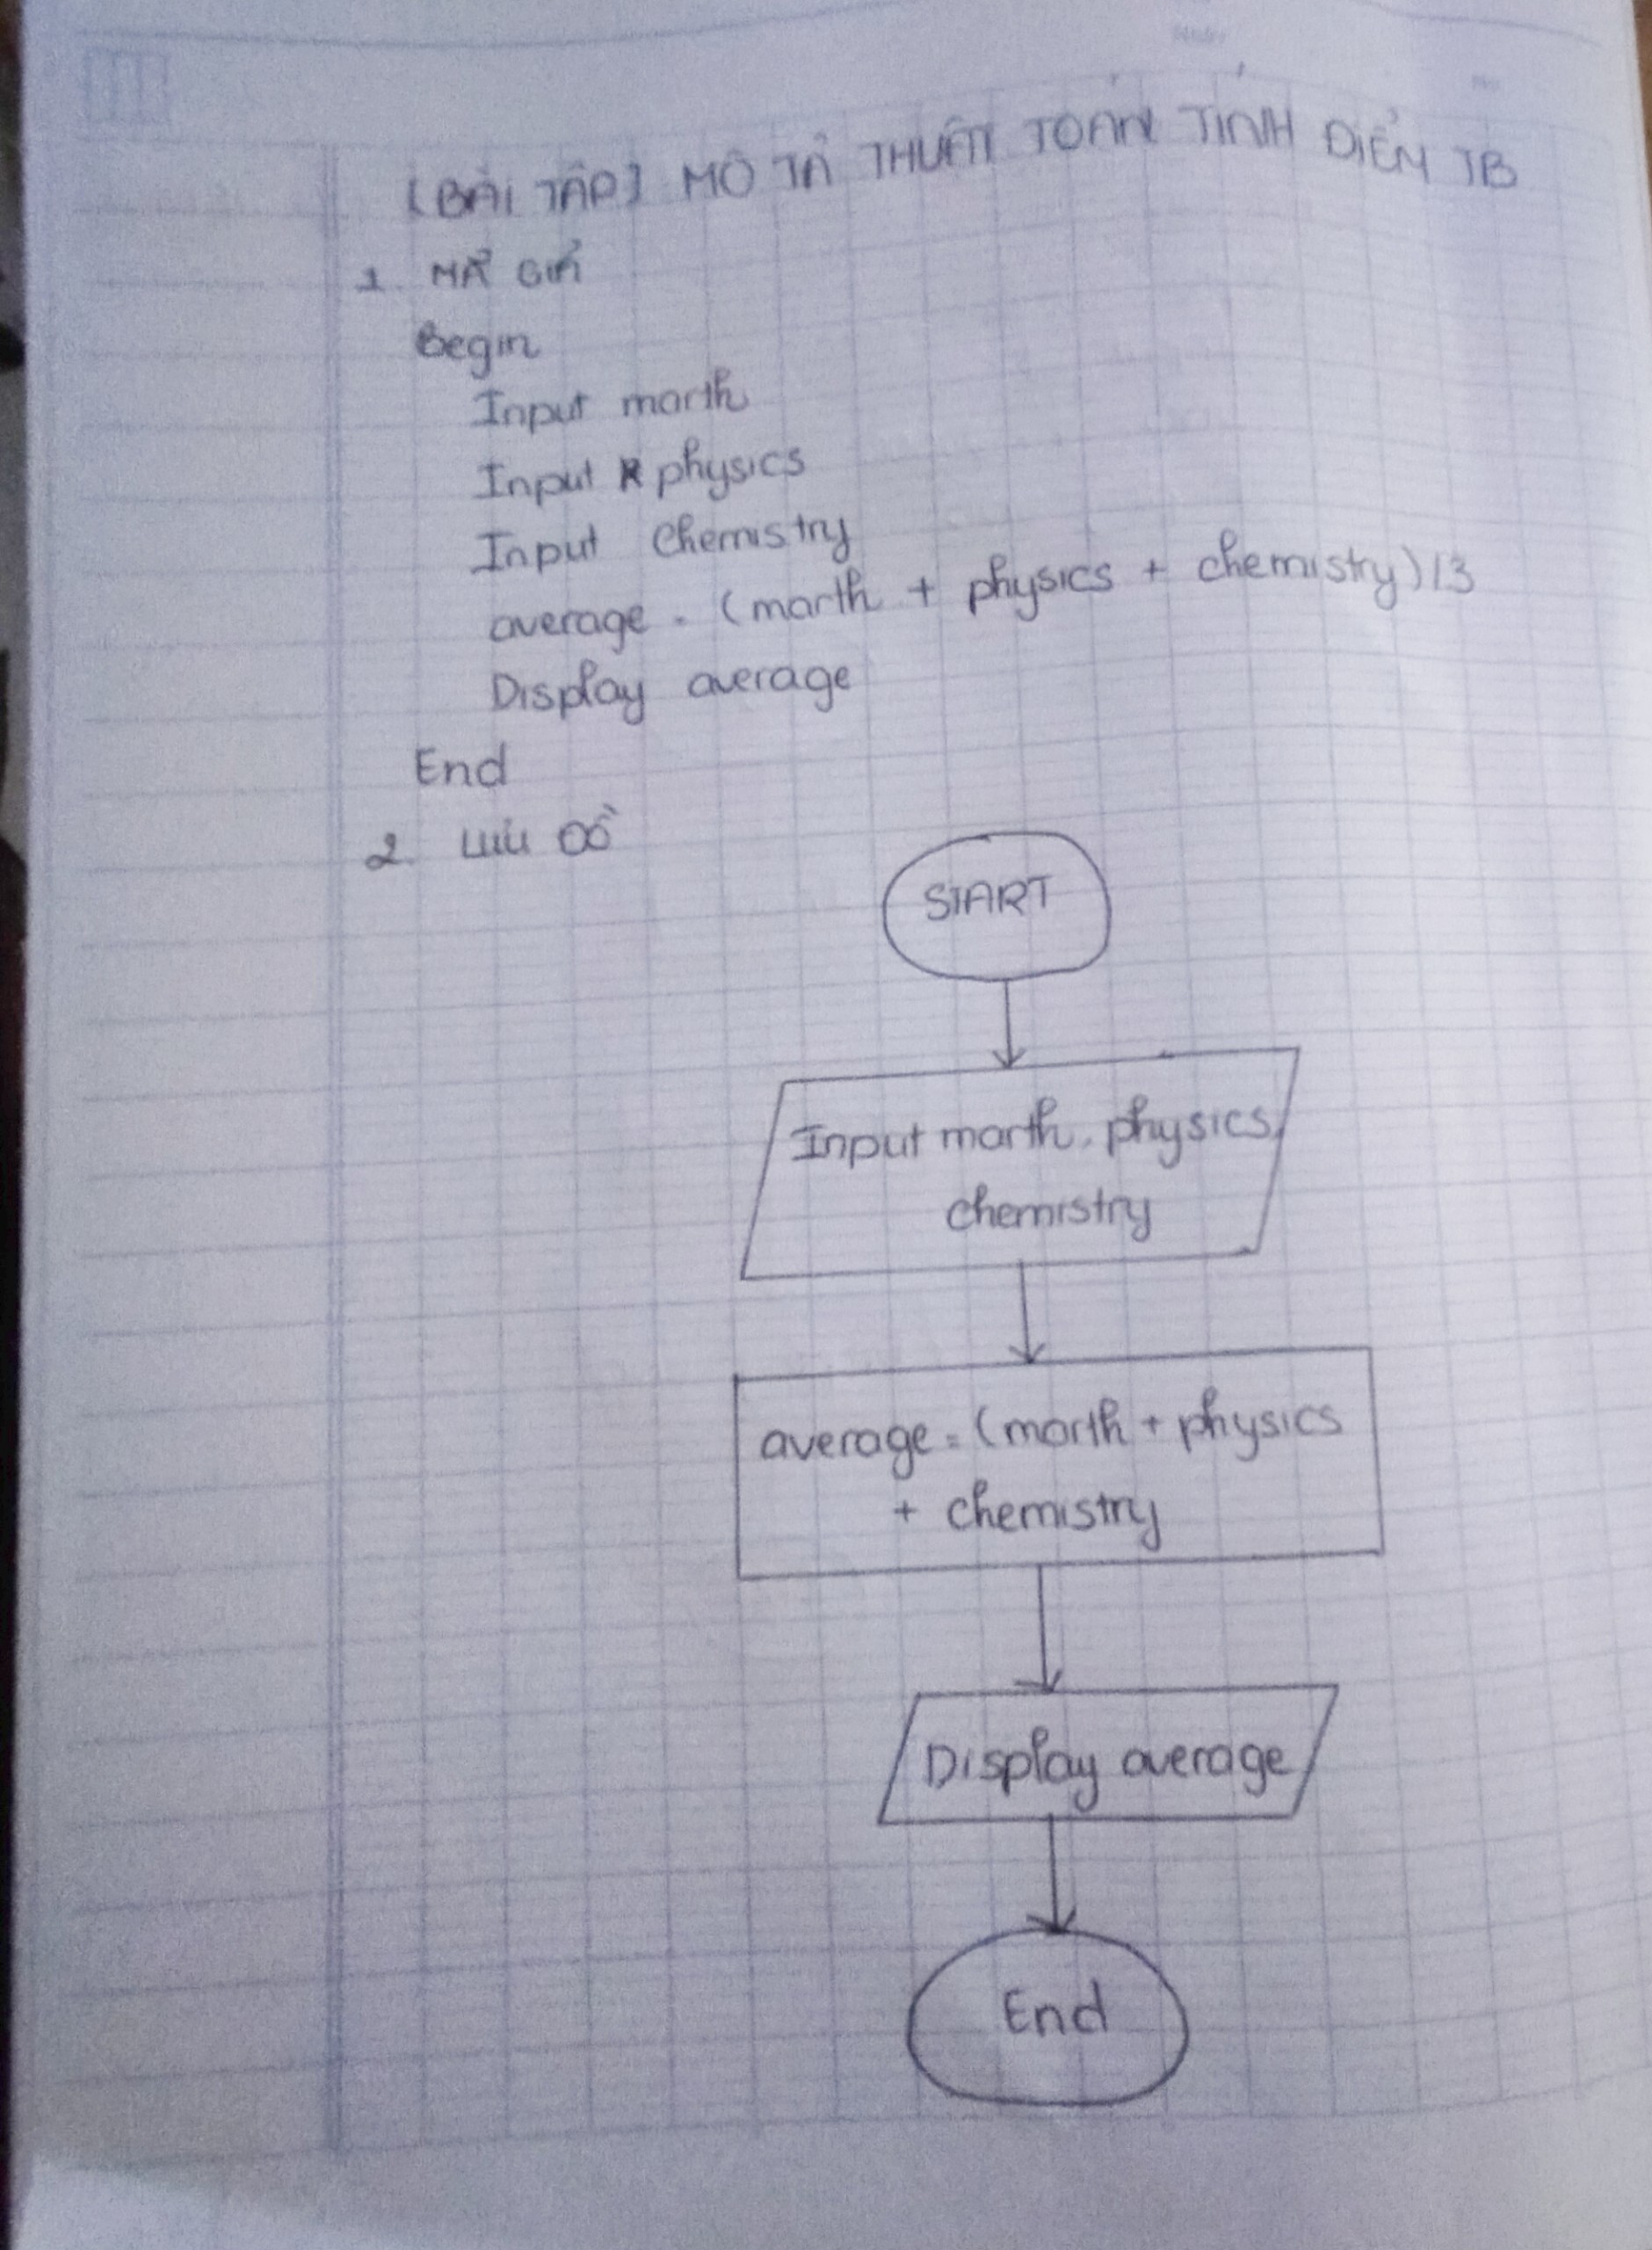 [BÀI TẬP] MÔ TẢ THUẬT TOÁN TÍNH ĐIỂM TB
1. MÃ GIẢ
Begin
Input marth
Input physics
Input Chemistry
average = (marth + physics + chemistry)/3
Display average
End
2. LƯU ĐỒ
START
Input marth, physics,
chemistry
average = (marth + physics
+ chemistry
Display average
End